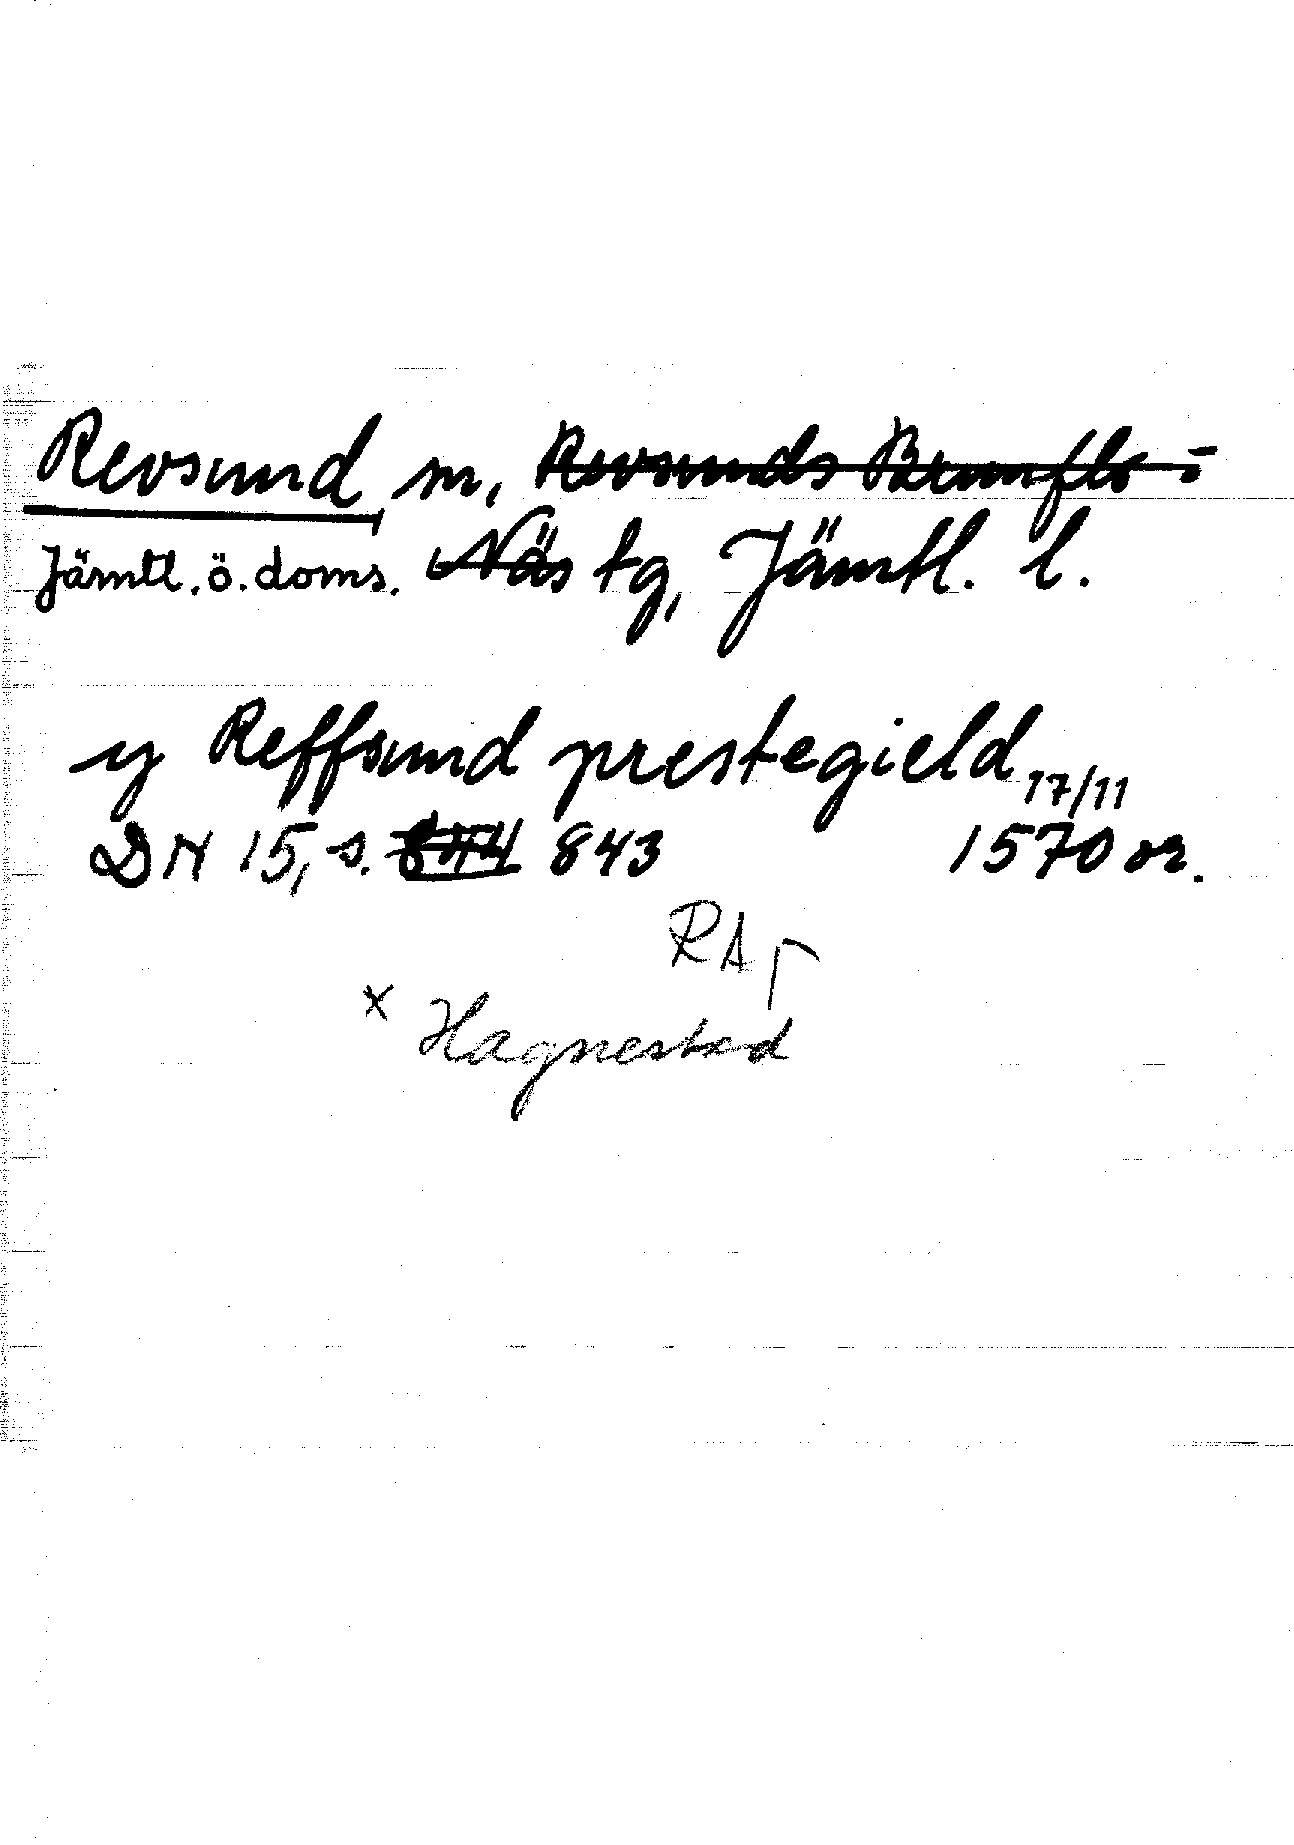 Revsund sn, Revsunds Brunflo -
Jämtl. ö. doms. Näs tg, Jämtl. l.
y Reffsund prestegield
17/11
DN 15, s. 844 843 1570 or.
RA
x Hagnestad